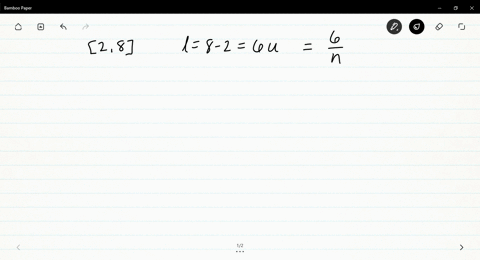 Bamboo Paper
[2,8] l = 8 - 2 = 6u = 6/n
1/2